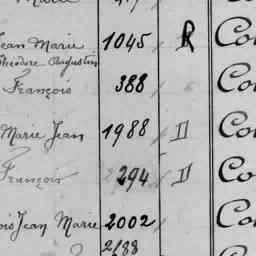 Marie
Jean Marie 1045 R Co
Théodore Augustin
François 388 Co
Marie Jean 1988 D Co
François 2294 D Co
ois Jean Marie 2002 Co
2688